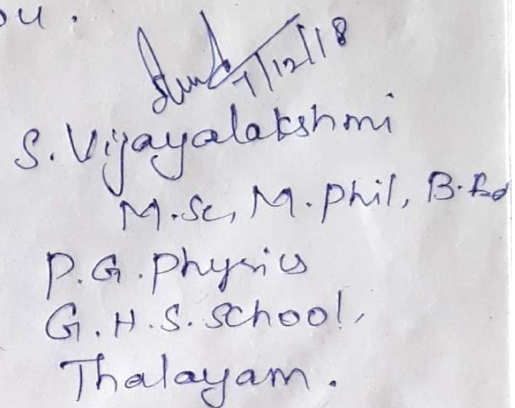 ou.
7/12/18
S. Vijayalakshmi
M.Sc, M.Phil, B.Ed
P.G. Physics
G.H.S. School,
Thalayam.